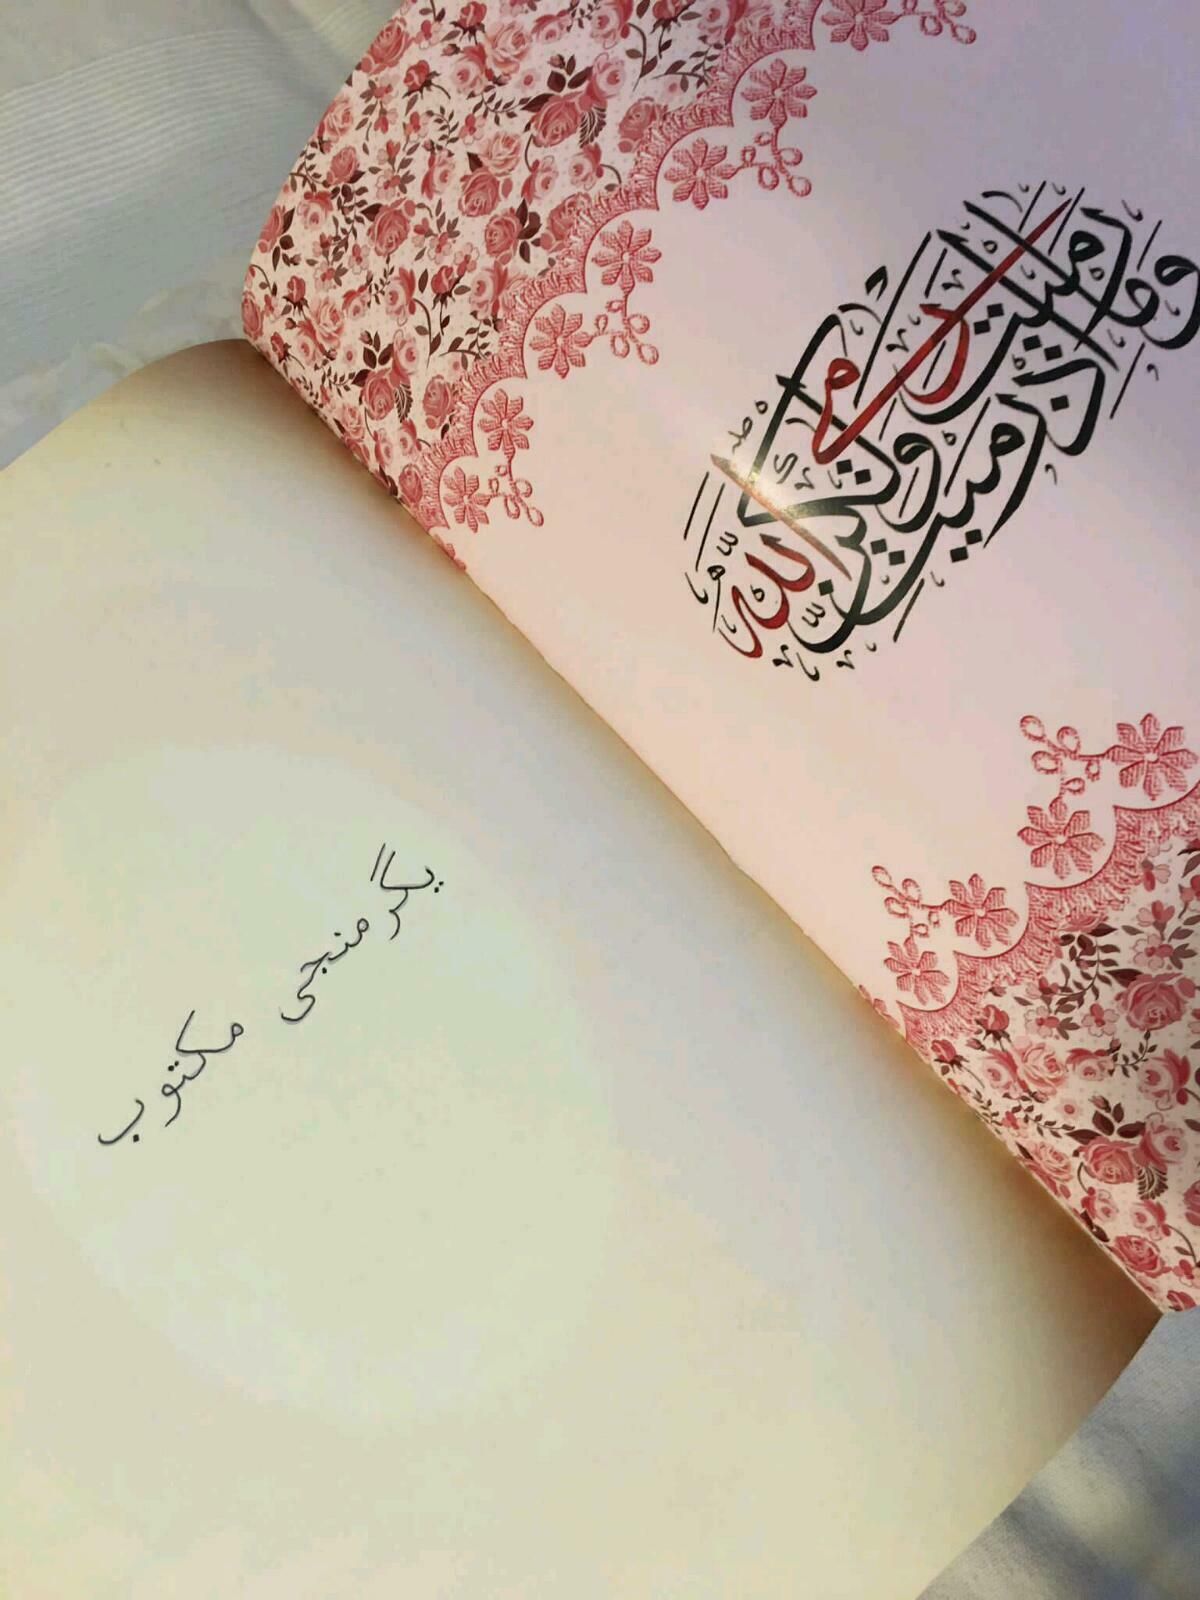 وَمَا رَمَيْتَ إِذْ رَمَيْتَ وَلَٰكِنَّ اللَّهَ رَمَىٰ
يگرمنجی مكتوب